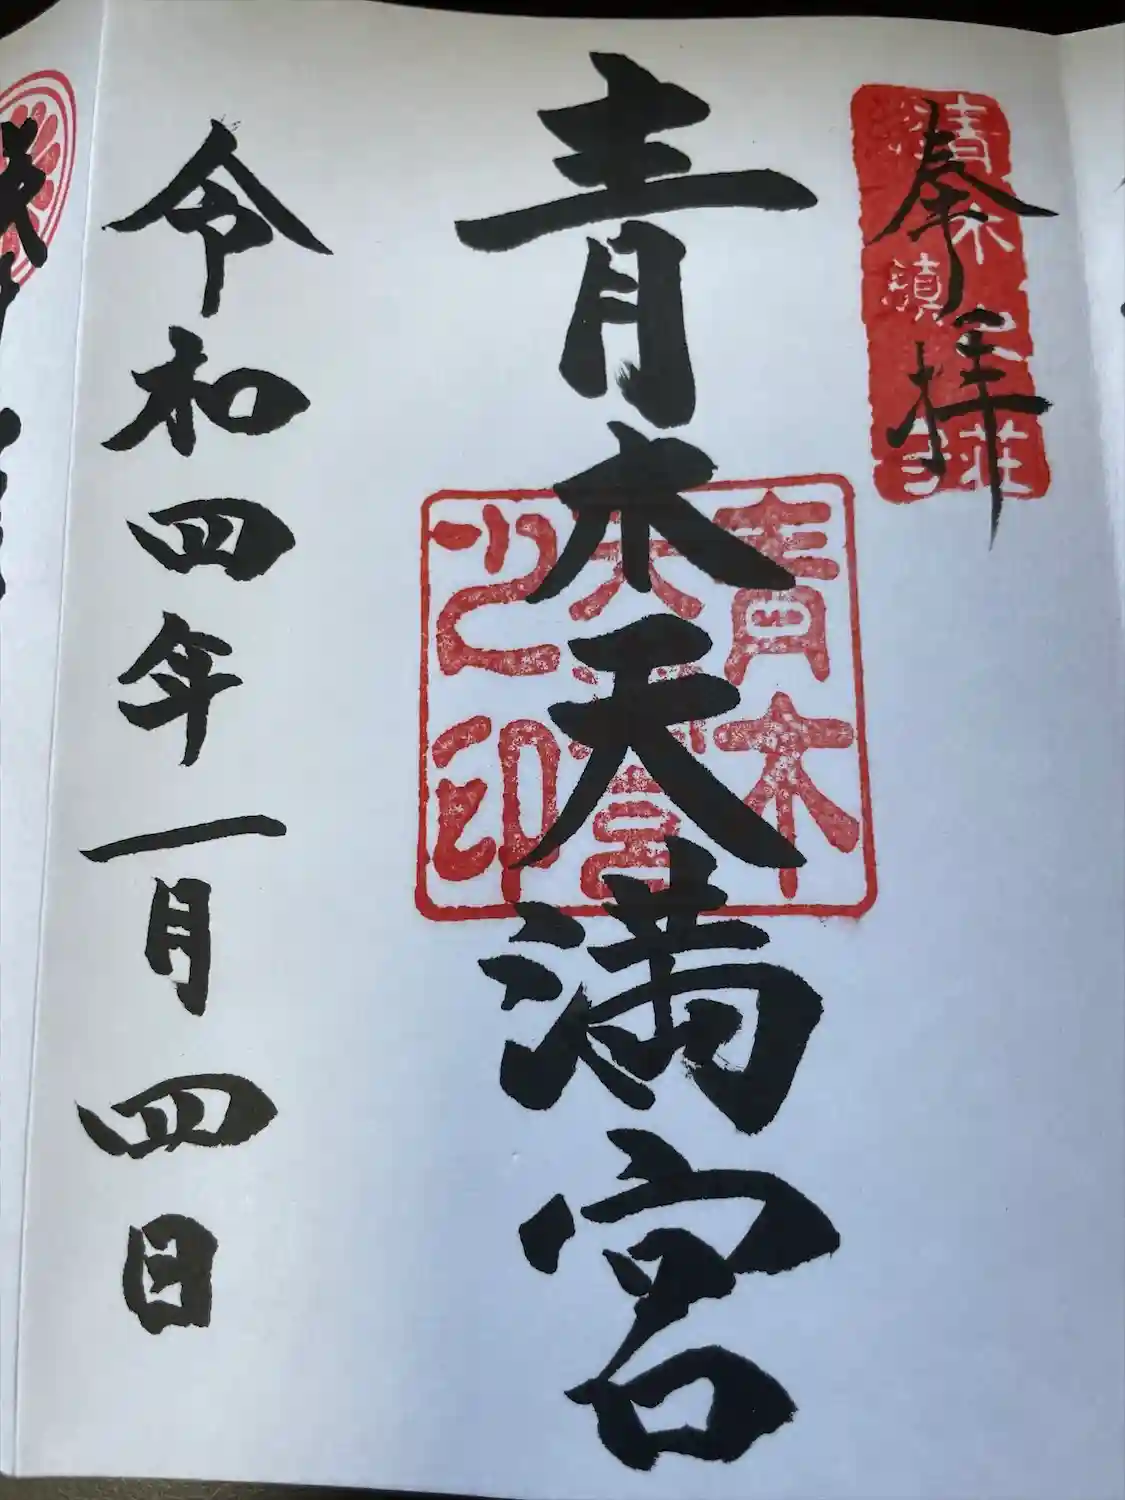 奉拝
青木天満宮
青木
天満宮
之印
令和四年一月四日